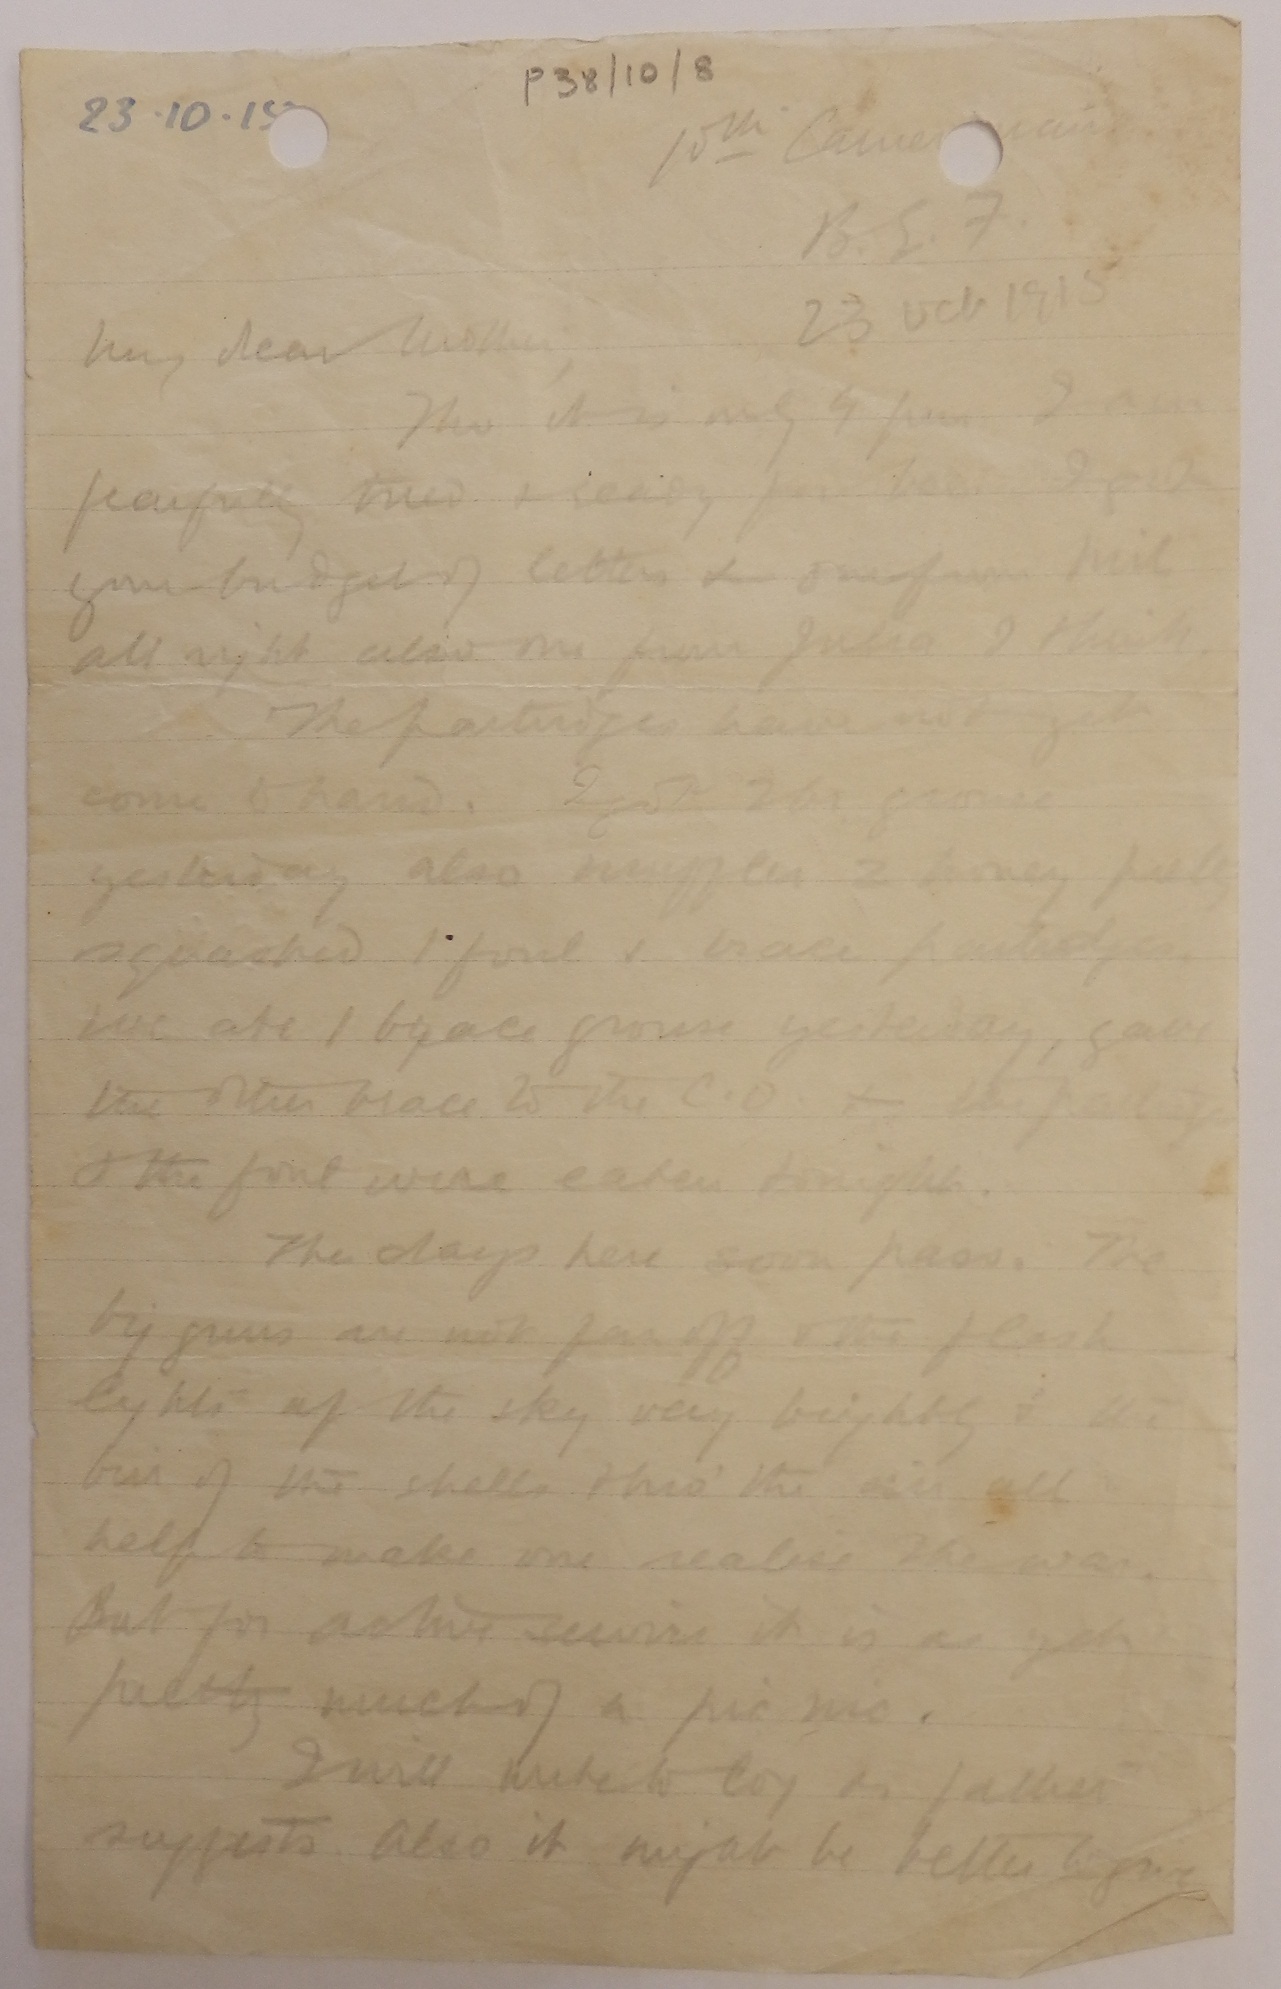 P38/10/8
23.10.15
10th Cameronians
B.E.F.
23 Oct 1915
My dear Mother,
Tho it is only 9 pm I am
fearfully tired & ready for bed. I got
your budget of letters & one from
all right also one from Julia I think.
The partridges have not yet
come to hand. I got the grouse
yesterday also muffler 2 honey pretty
squashed 1 fowl & brace partridges.
We ate 1 brace grouse yesterday, gave
the other brace to the C.O. & the partridges
& the fowl were eaten tonight.
The days here soon pass. The
big guns are not far off & the flash
lights up the sky very brightly & the
of the shells thro' the air all
help to make one realise the war.
But for active service it is as yet
pretty much of a pic nic.
I will write to Coy as father
suggests. Also it might be better to give